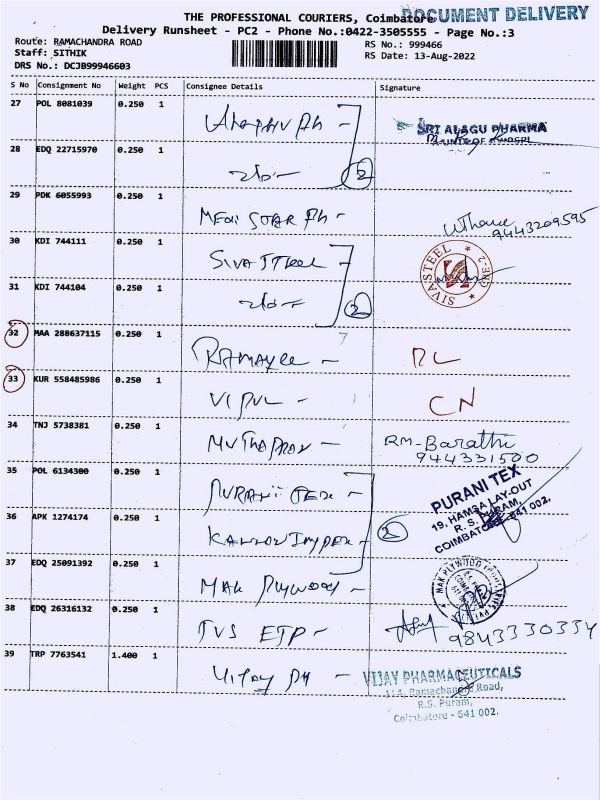 THE PROFESSIONAL COURIERS, Coimbatore
DOCUMENT DELIVERY
Delivery Runsheet - PC2 - Phone No.:0422-3505555 - Page No.:3
Route: RAMACHANDRA ROAD
RS No.: 999466
Staff: SITHIK
RS Date: 13-Aug-2022
DRS No.: DCJB99946603
S No Consignment No Weight PCS Consignee Details Signature
27 POL 8081039 0.250 1
SRI ALAGU PHARMA
28 EDQ 22715970 0.250 1
2
29 PDK 6055993 0.250 1 MEDI STAR Ph -
9443209595
30 KDI 744111 0.250 1 SIVA STEEL
SIVA STEEL CBE-2
31 KDI 744104 0.250 1
2
32 MAA 288637115 0.250 1 RAMAYEE - DL
33 KUR 558485986 0.250 1 VIPUL - CN
34 TNJ 5738381 0.250 1
RM-Barathi
944331500
35 POL 6134300 0.250 1 PURANI TEX -
PURANI TEX
19, HAMSA LAY-OUT
R. S. PURAM,
COIMBATORE-641 002.
36 APK 1274174 0.250 1 KANNON IMPEX -
2
37 EDQ 25091392 0.250 1 MAK PLYWOOD -
MAK PLYWOOD
38 EDQ 26316132 0.250 1 TVS ETP -
9843330334
39 TRP 7763541 1.400 1 VIJAY PH -
VIJAY PHARMACEUTICALS
Ramachandra Road,
R.S. Puram,
Coimbatore - 641 002.